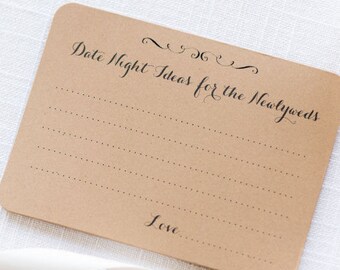 Date Night Ideas for the Newlyweds
Love